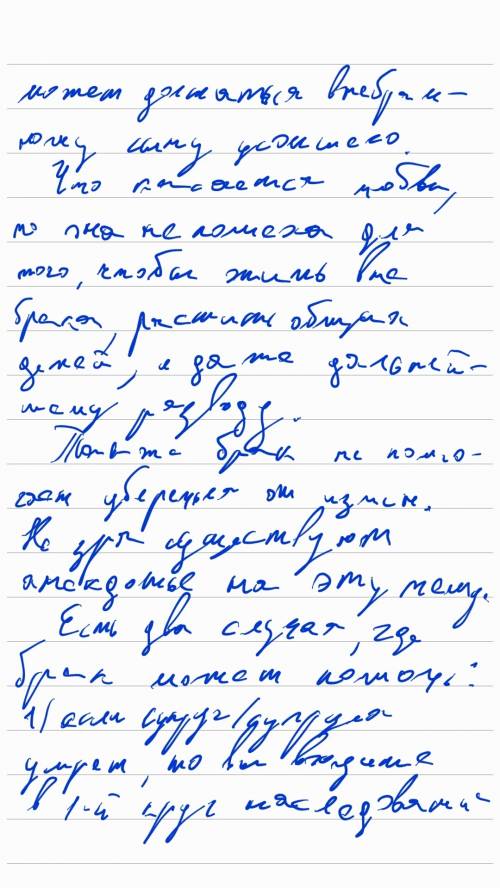 может достаться внебрач-
ному сыну усопшего.
Что касается любви,
то она не помеха для
того, чтобы жить вне
брака, растить общих
детей, и даже дальней-
шему разводу.
Также брак не помо-
гает уберечься от измен.
Не зря существуют
анекдоты на эту тему.
Есть два случая, где
брак может помочь:
1) если супруг/супруга
умрет, то вы входите
в 1-й круг наследования